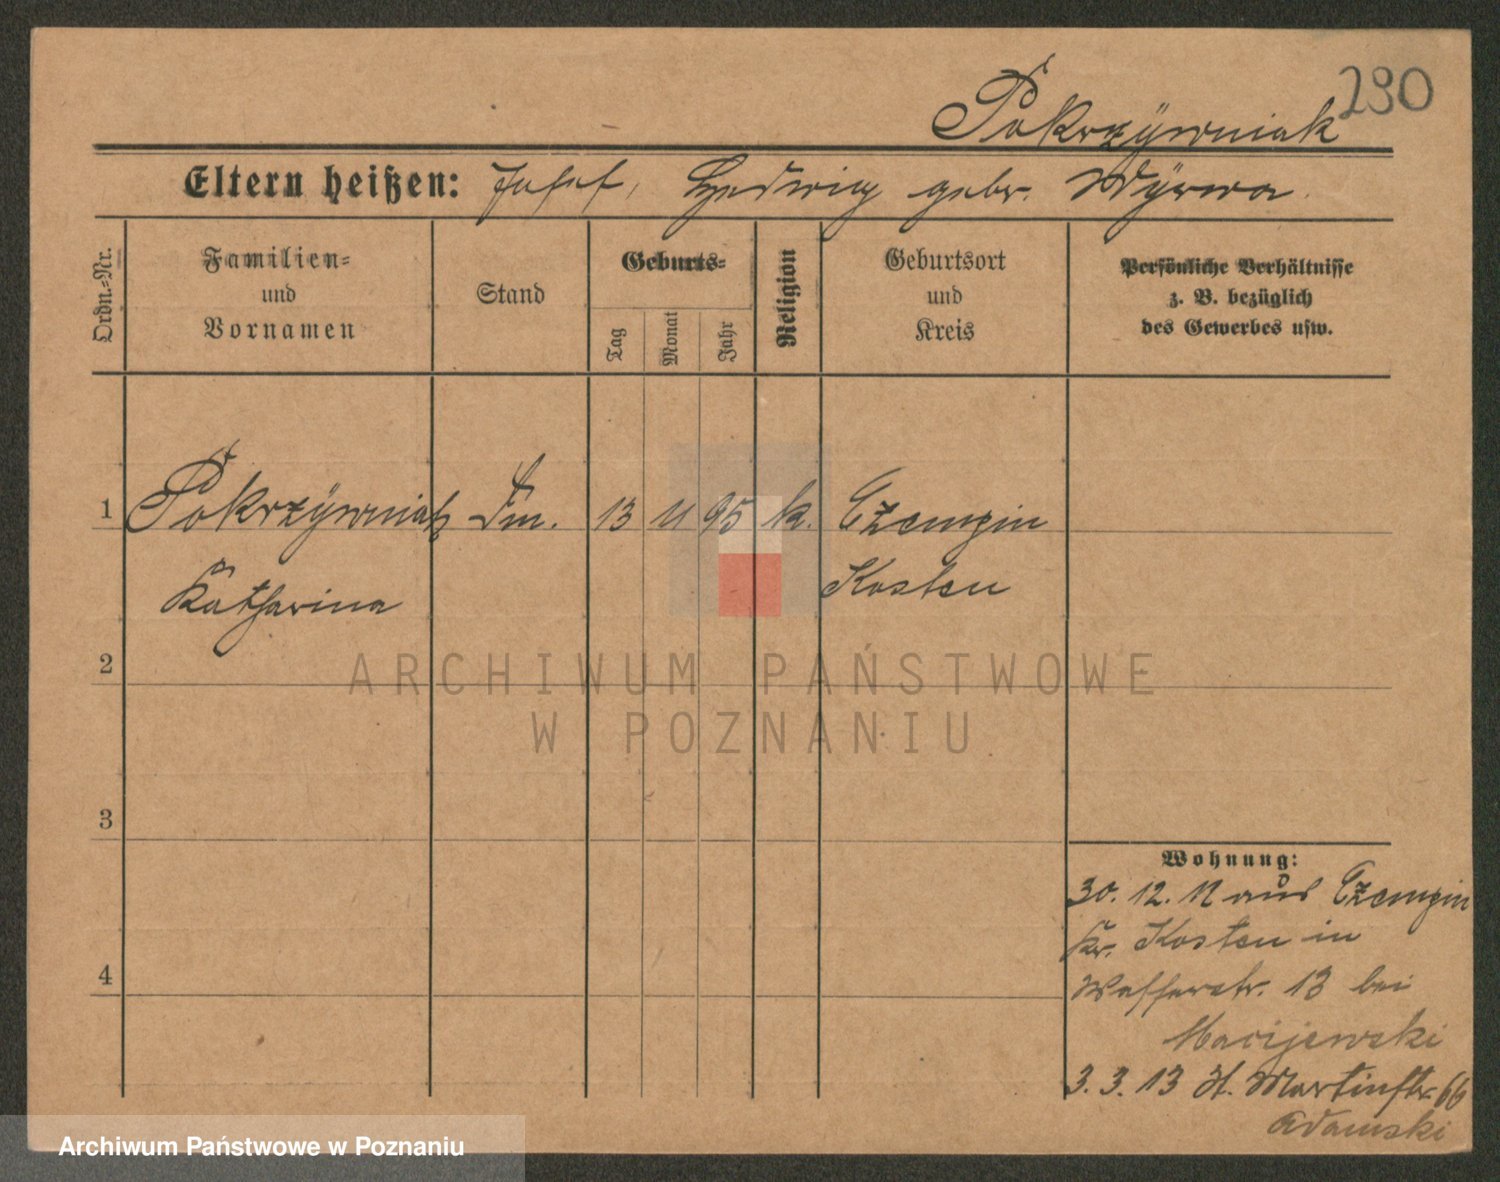 290
Pokrzÿwniak
Eltern heißen: Josef, Hedwig gebr. Wÿrwa.
Ordn.-Nr.
Familien-
und
Vornamen
Stand
Geburts-
Tag
Monat
Jahr
Religion
Geburtsort
und
Kreis
Persönliche Verhältnisse
z. B. bezüglich
des Gewerbes usw.
1 Pokrzÿwniak 13 11 95 k. Czempin
Katharina Kosten
2
3
4
Wohnung:
30. 12. 12 aus Czempin
Kr. Kosten in
Wasserstr. 13 bei
Macijewski
3. 3. 13 St. Martinstr. 66
Adamski
ARCHIWUM PAŃSTWOWE
W POZNANIU
Archiwum Państwowe w Poznaniu